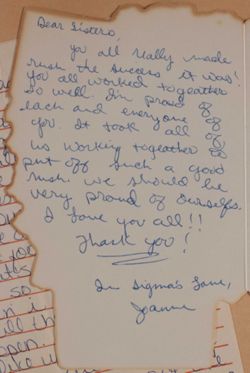 Dear Sisters,
You all really made
rush the success it was!
You all worked togeather
so well. I'm proud of
each and everyone of
you. It took all of
us working togeather to
put off such a good
rush. We should be
very proud of ourselves.
I love you all!!
Thank you!
In Sigma's Love,
Joanne